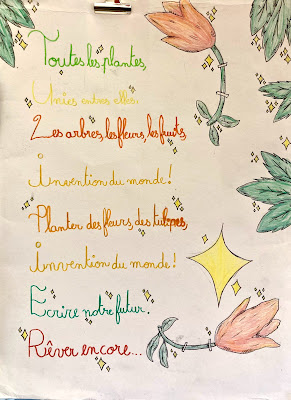 Toutes les plantes,
Unies entre elles.
Les arbres, les fleurs, les fruits,
Invention du monde !
Planter des fleurs, des tulipes,
Invention du monde !
Ecrire notre futur.
Rêver encore...